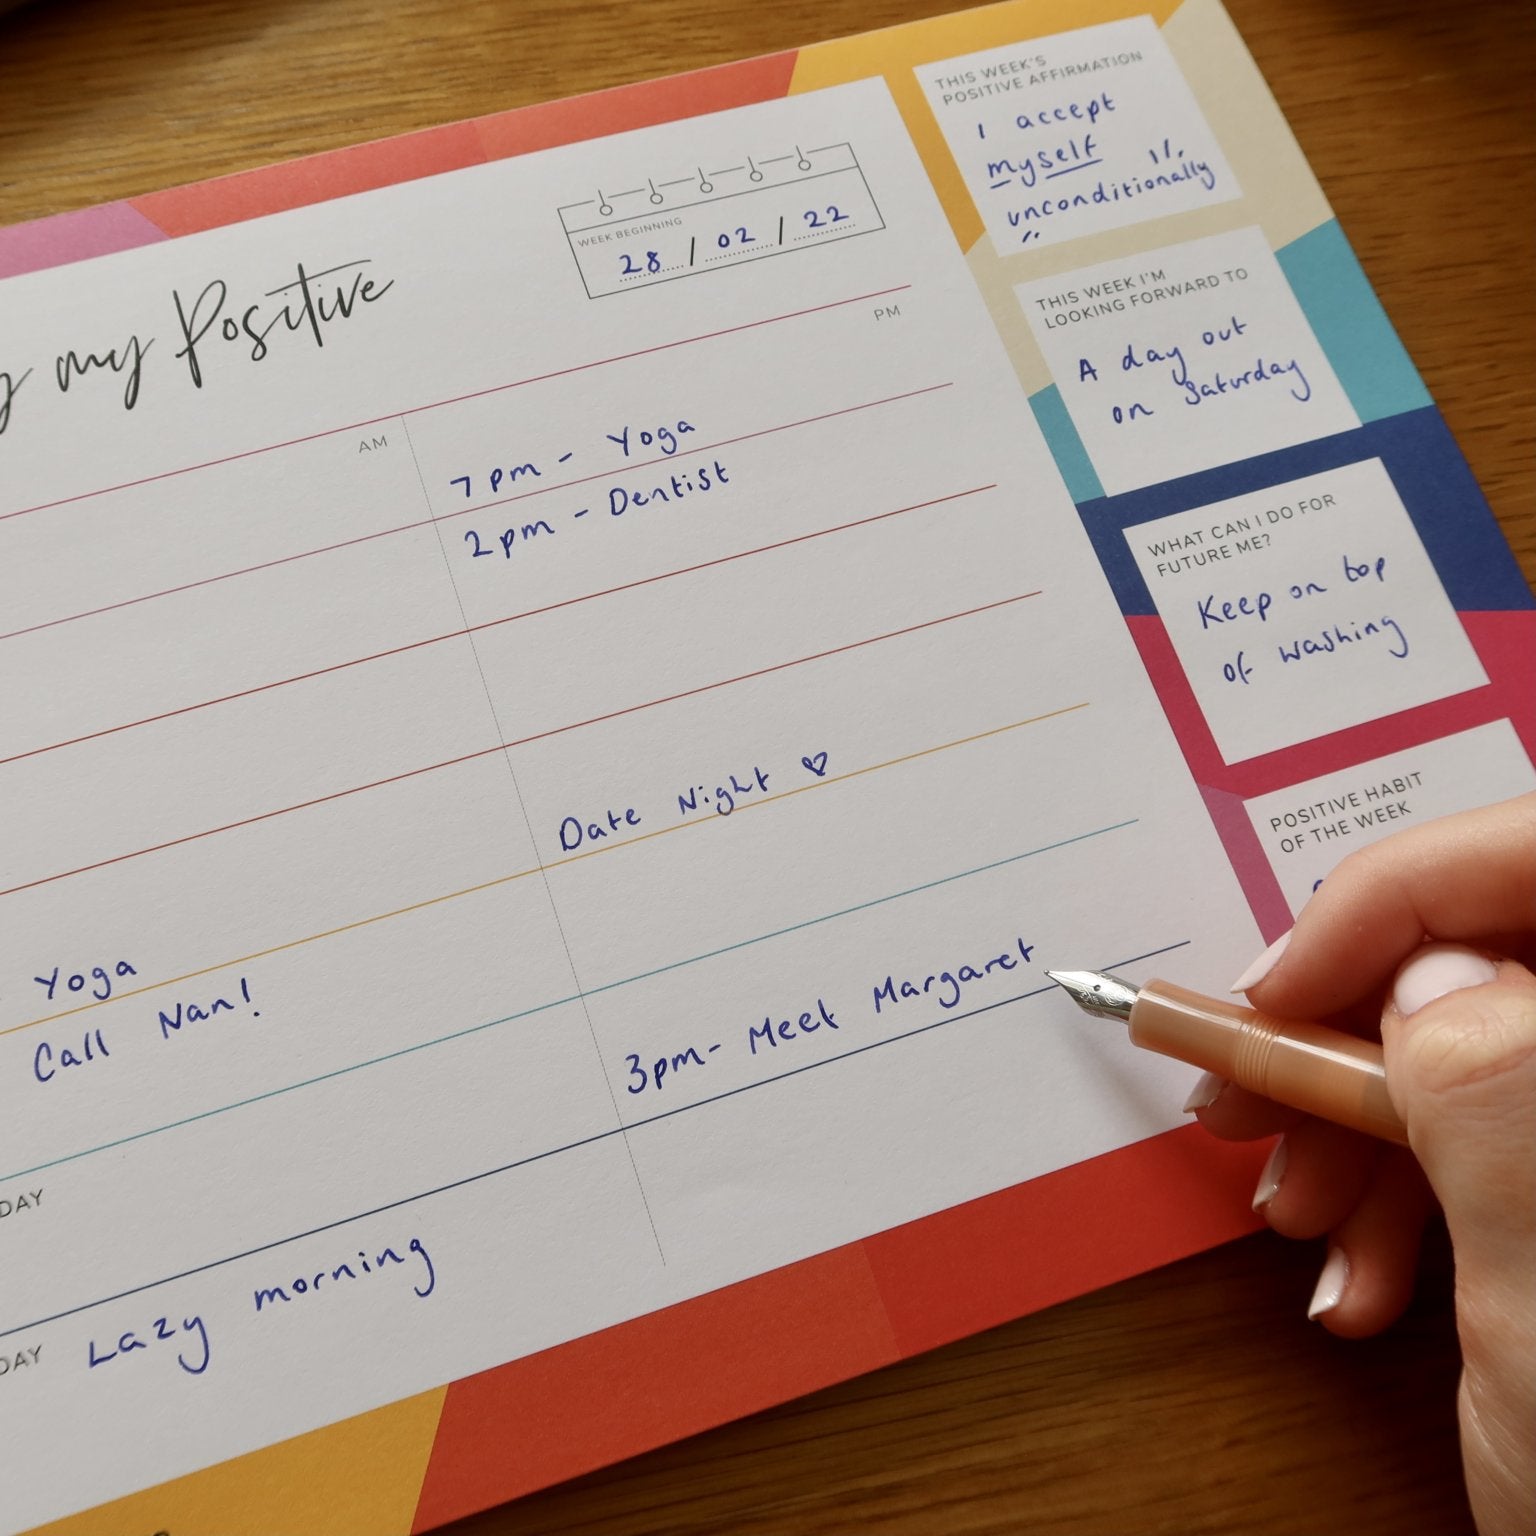 my Positive
WEEK BEGINNING
28 / 02 / 22
AM
PM
7pm - Yoga
2pm - Dentist
Date Night ♡
Yoga
Call Nan!
3pm - Meet Margaret
DAY
DAY Lazy morning
THIS WEEK'S
POSITIVE AFFIRMATION
I accept
myself
unconditionally
THIS WEEK I'M
LOOKING FORWARD TO
A day out
on Saturday
WHAT CAN I DO FOR
FUTURE ME?
Keep on top
of washing
POSITIVE HABIT
OF THE WEEK